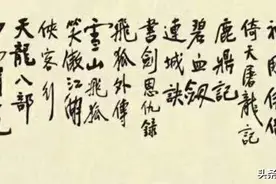 神鵰俠侶
倚天屠龍記
鹿鼎記
碧血劍
連城訣
書劍恩仇錄
飛狐外傳
雪山飛狐
笑傲江湖
俠客行
天龍八部
头条